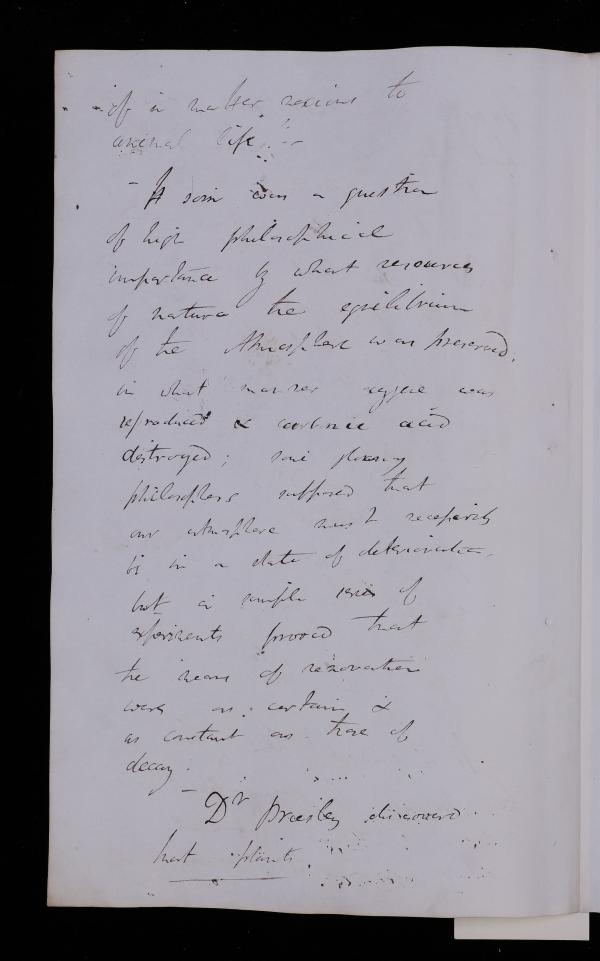 of a matter noxious to
animal life. –
– It soon was a question
of high philosophical
importance by what resources
of nature the equilibrium
of the Atmosphere was preserved,
in what manner oxygene was
reproduced & carbonic acid
destroyed; some gloomy
philosophers supposed that
our atmosphere must necessarily
be in a state of deterioration,
but a simple series of
experiments proved that
the means of renovation
were as certain &
as constant as those of
decay.
– Dr Priestley discovered
that plants